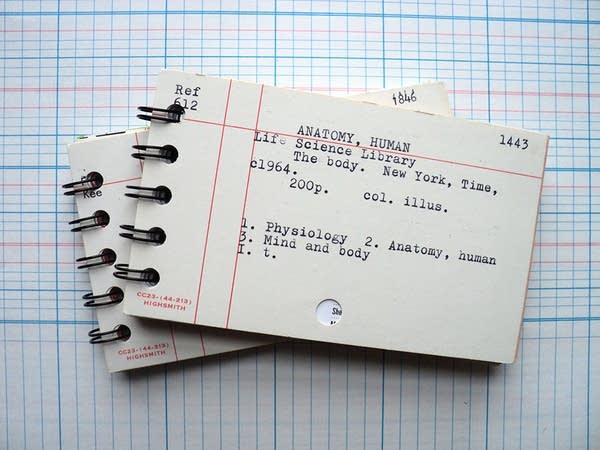 Ref
612
1443
ANATOMY, HUMAN
Life Science Library
The body. New York, Time,
c1964.
200p. col. illus.
1. Physiology 2. Anatomy, human
3. Mind and body
I. t.
CC23-(44-213)
HIGHSMITH
She
1846
Kee
CC23-(44-213)
HIGHSMITH